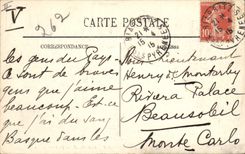 CARTE POSTALE
CORRESPONDANCE
262
Les gens du Pays
ce sont de braves
gens que j'aime
beaucoup. Est-ce
que j'ai du sang
Basque dans les
Lieutenant
Henry de
Riviera Palace
Beausoleil
Monte Carlo
10